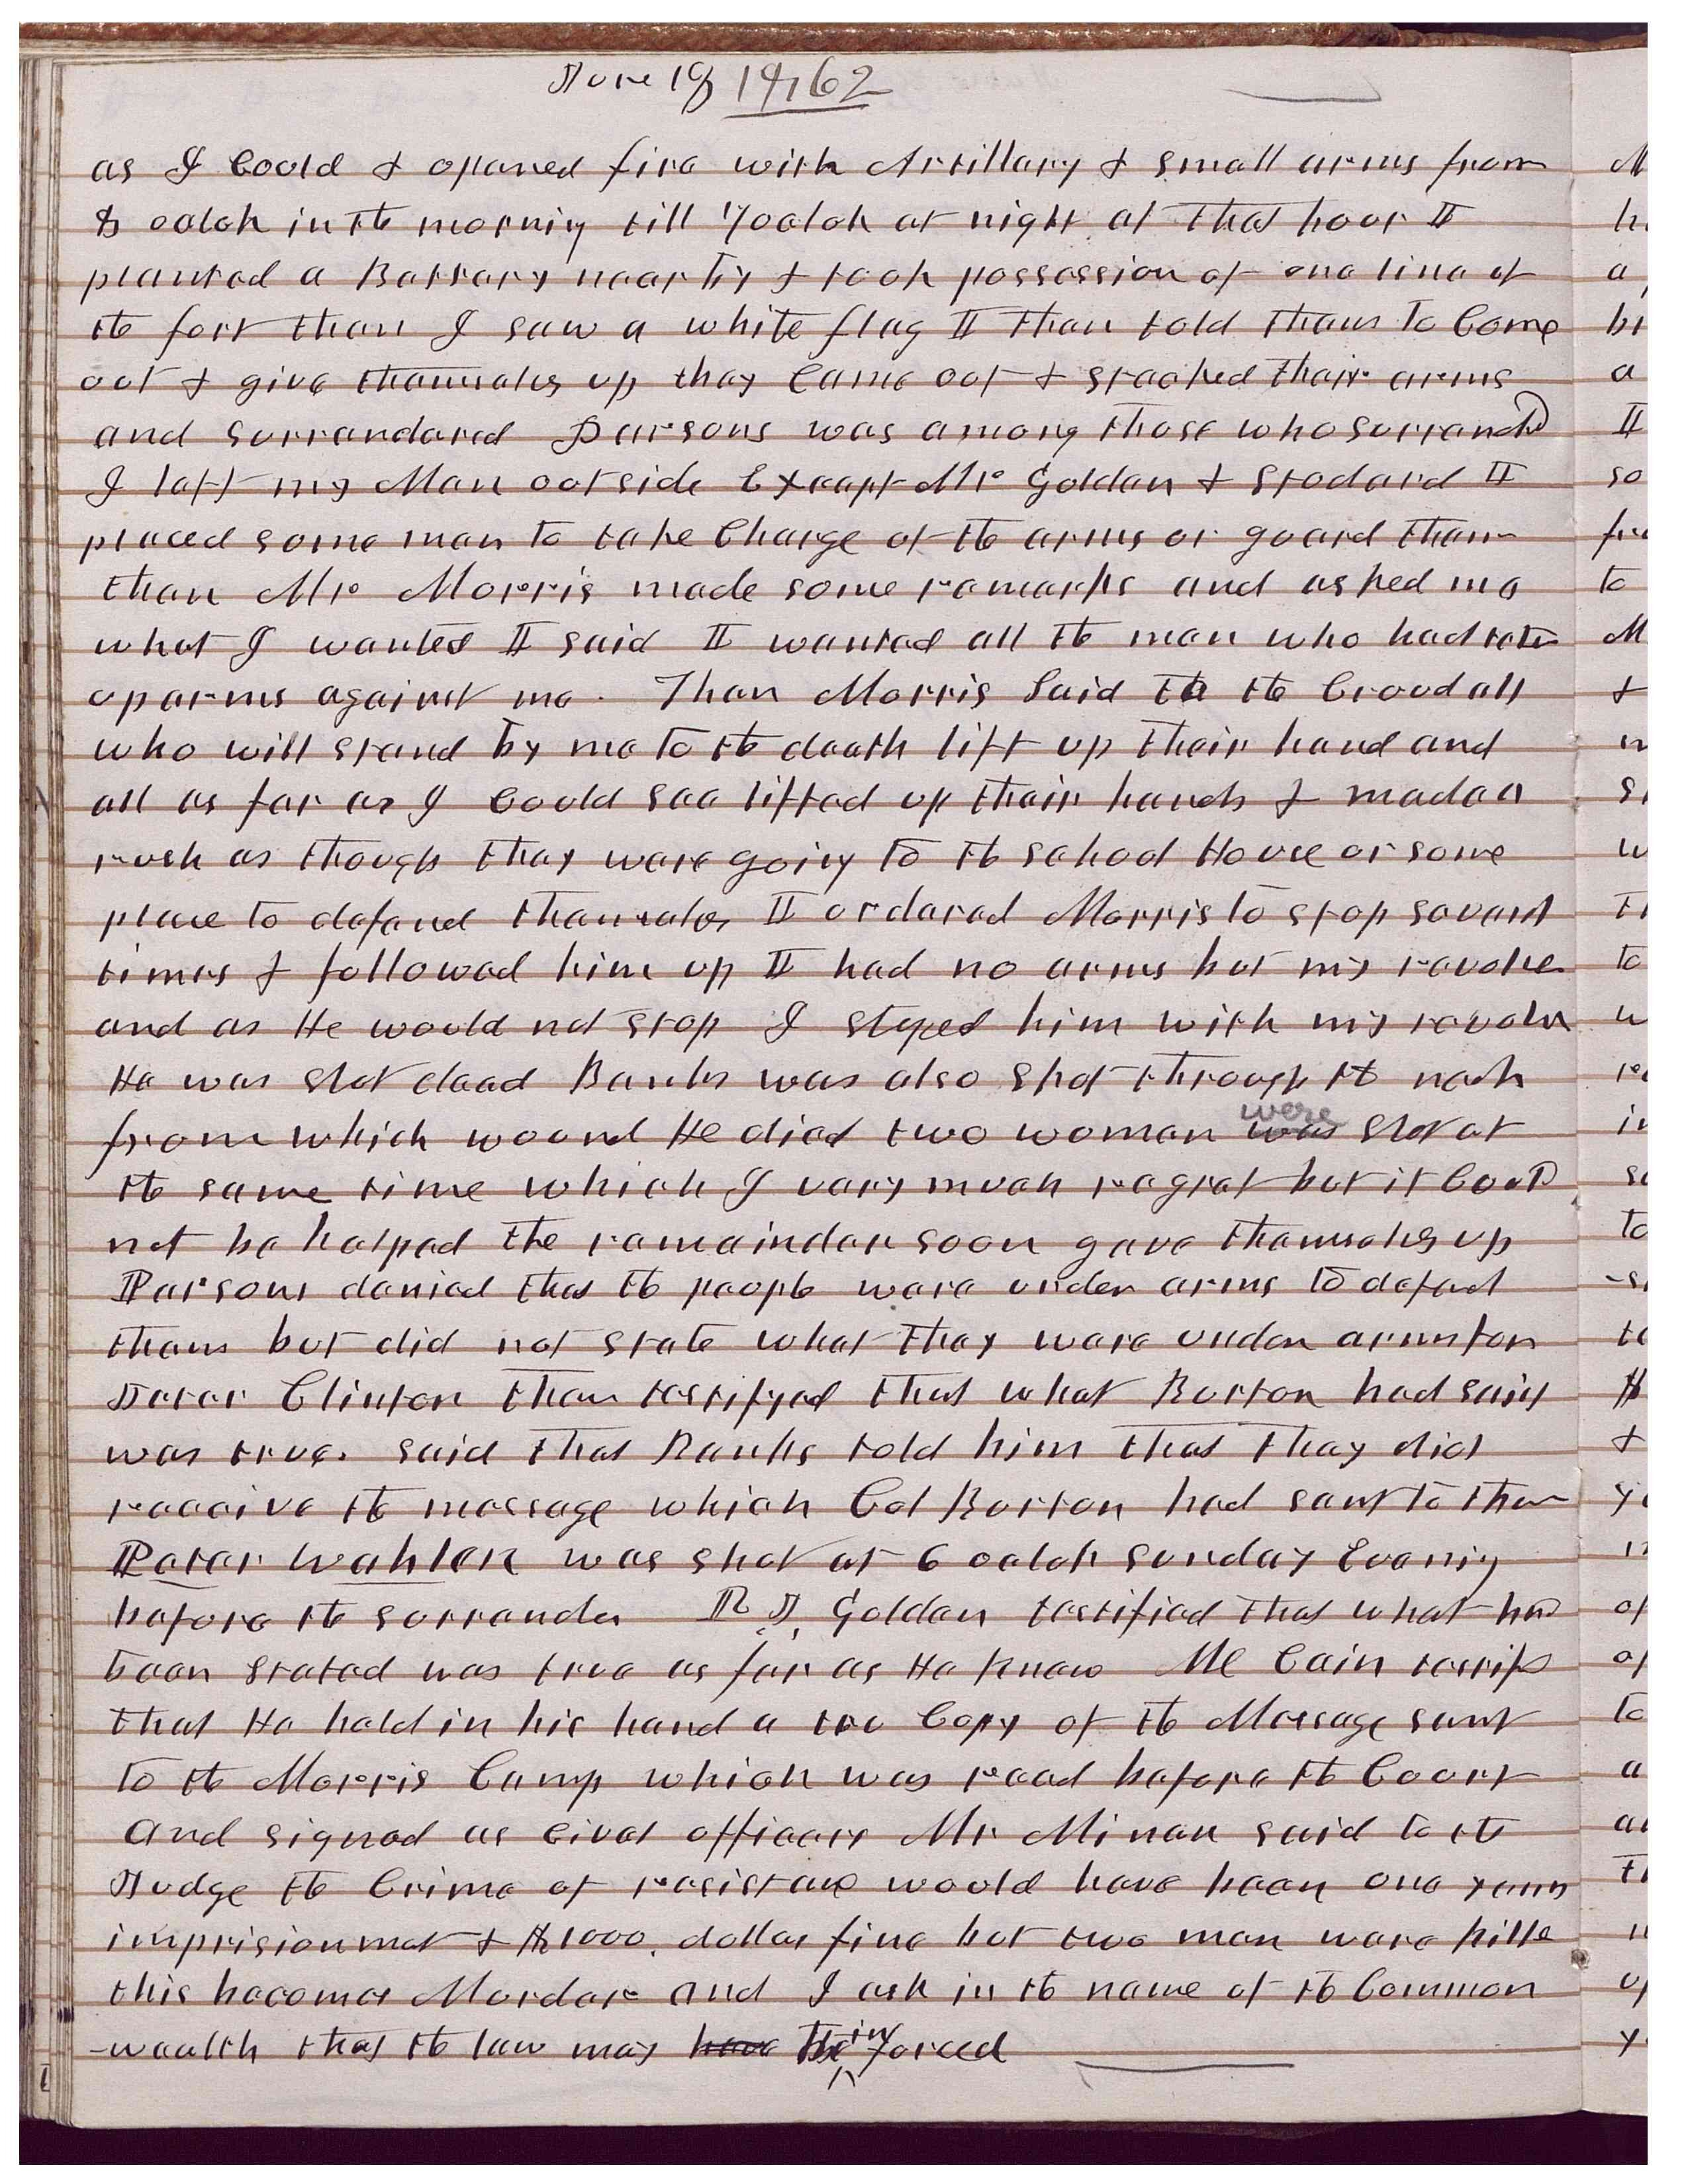 June 18 19, 62
as I Could & opened fire with Artillary & small arms from
8 oclok in the morning till 7 oclok at night at that hour I
planted a Battery near by & took possession of one line of
the fort then I saw a white flag I then told them to Come
out & give themselves up they Came out & stacked their arms
and surrendered Parsons was among those who surrendd
I left my Men outside Except Mr Golden & Stodard I
placed some men to take Charge of the arms or guard them
then Mr Morris made some remarks and asked me
what I wanted I said I wanted all the men who had taken
up arms against me. Then Morris Said to the Croud all
who will stand by me to the death lift up their hand and
all as far as I Could see lifted up their hands & made a
rush as though they were going to the school House or some
place to defend themselves I ordered Morris to stop severl
times & followed him up I had no arms but my revolver
and as He would not stop I stoped him with my revolvr
He was shot dead Banks was also shot through the neck
from which wound He died two women was were shot at
the same time which I very much regret but it Could
not be helped the remainder soon gave themselves up
Parsons denied that the people were under arms to defend
them but did not state what they were under arms for
Jeter Clinton then testifyed that what Burton had said
was true. said that Banks told him that they did
receive the message which Col Burton had sent to them
Peter Wahlen was shot at 6 oclok sunday Evening
before the surrender R. J. Golden testified that what had
been stated was true as far as He knew Mc Cain testifd
that He held in his hand a true Copy of the Message sent
to the Morris Camp which was read before the Court
and signed as Civel officers Mr Miner said to the
Judge the Crime of resistance would have been one years
imprisionmet & $1000. dollar fine but two men were kille
this becomes Murder and I ask in the name of the Common
-wealth that the law may have be inforced